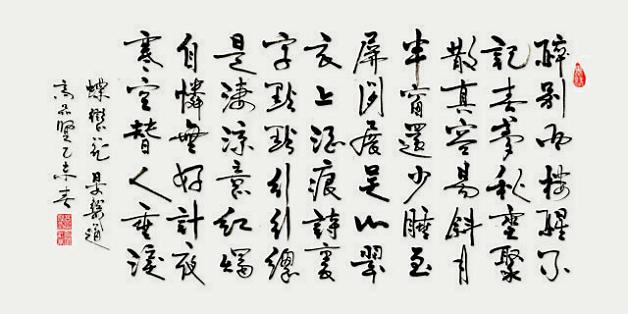 醉别西樓醒不
記春夢秋雲聚
散真容易斜月
半窗還少睡畫
屏閑展吳山翠
衣上酒痕詩裏
字點點行行總
是淒涼意紅燭
自憐無好計夜
寒空替人垂淚
蝶戀花 晏幾道
高品賢乙未春